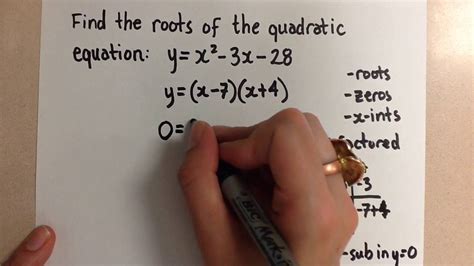 Find the roots of the quadratic
equation: y=x²-3x-28
y=(x-7)(x+4)
0=
-roots
-zeros
-x-ints
factored
-3
-7+4
-sub in y=0
BIC Mark